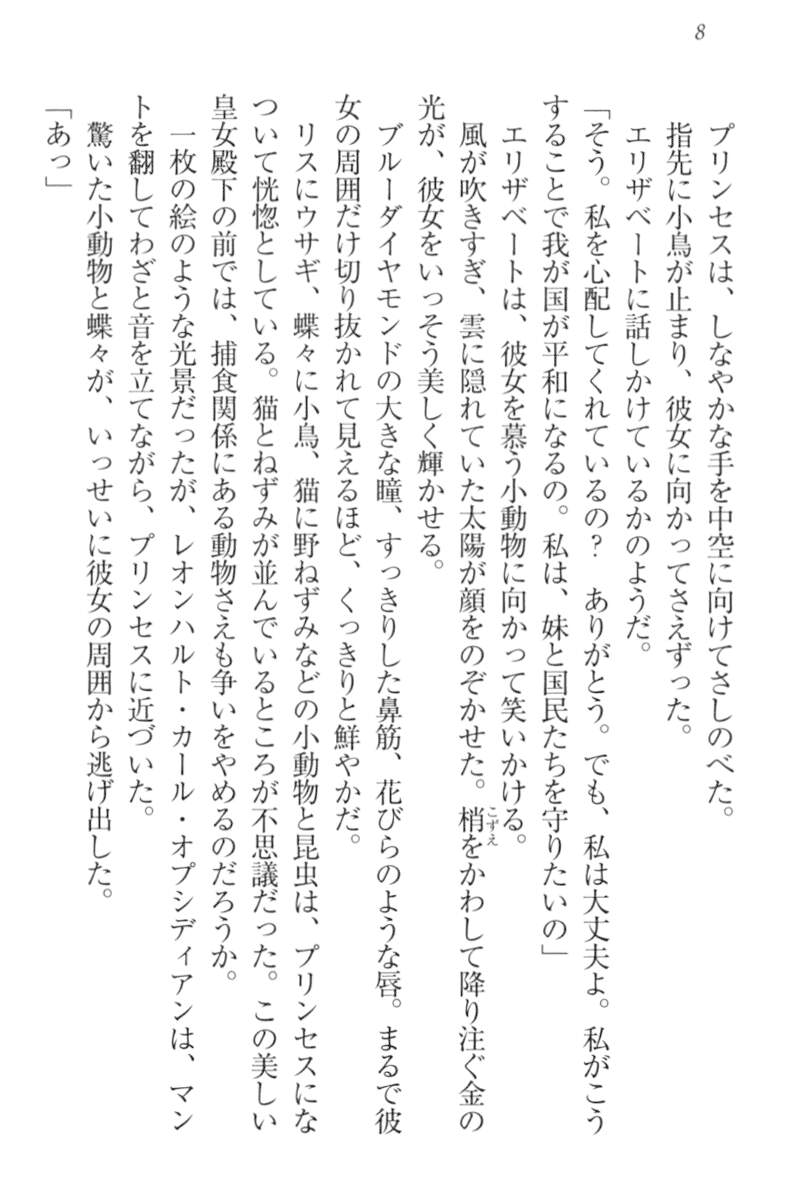 8
プリンセスは、しなやかな手を中空に向けてさしのべた。
指先に小鳥が止まり、彼女に向かってさえずった。
エリザベートに話しかけているかのようだ。
「そう。私を心配してくれているの？　ありがとう。でも、私は大丈夫よ。私がこう
することで我が国が平和になるの。私は、妹と国民たちを守りたいの」
エリザベートは、彼女を慕う小動物に向かって笑いかける。
風が吹きすぎ、雲に隠れていた太陽が顔をのぞかせた。梢をかわして降り注ぐ金の
こずえ
光が、彼女をいっそう美しく輝かせる。
ブルーダイヤモンドの大きな瞳、すっきりした鼻筋、花びらのような唇。まるで彼
女の周囲だけ切り抜かれて見えるほど、くっきりと鮮やかだ。
リスにウサギ、蝶々に小鳥、猫に野ねずみなどの小動物と昆虫は、プリンセスにな
ついて恍惚としている。猫とねずみが並んでいるところが不思議だった。この美しい
皇女殿下の前では、捕食関係にある動物さえも争いをやめるのだろうか。
一枚の絵のような光景だったが、レオンハルト・カール・オプシディアンは、マン
トを翻してわざと音を立てながら、プリンセスに近づいた。
驚いた小動物と蝶々が、いっせいに彼女の周囲から逃げ出した。
「あっ」